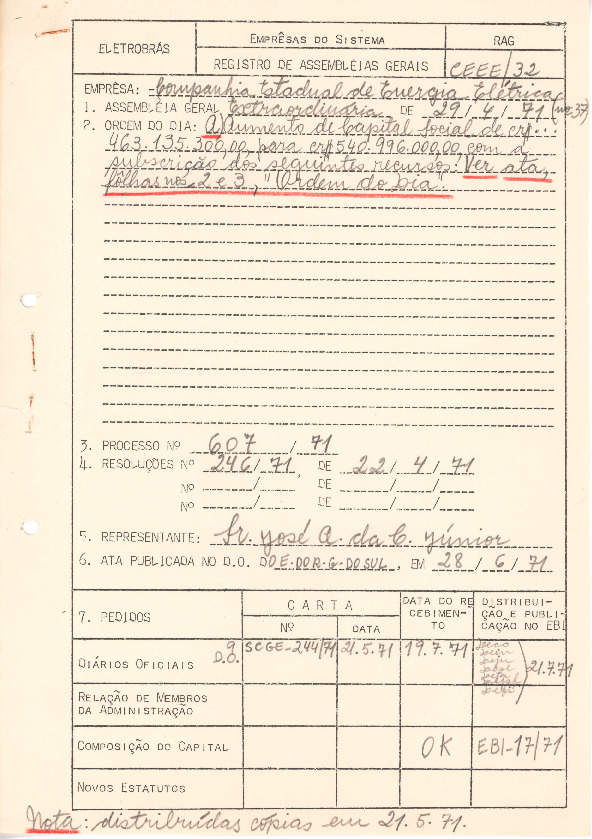 ELETROBRÁS
EMPRÊSAS DO SISTEMA
RAG
REGISTRO DE ASSEMBLÉIAS GERAIS
CEEE/32
EMPRÊSA: Companhia Estadual de Energia Elétrica
1. ASSEMBLÉIA GERAL Extraordinária DE 29/4/71 (nº 37)
2. ORDEM DO DIA: A) Aumento de Capital Social de cr$...
463.135.300,00 para cr$ 540.996.000,00 com a
subscrição dos seguintes recursos: Ver ata,
fôlhas nos. 2 e 3, "Ordem do Dia".
3. PROCESSO Nº 607/71
4. RESOLUÇÕES Nº 246/71, DE 22/4/71
Nº / DE / /
Nº / DE / /
5. REPRESENTANTE: Sr. José A. da C. Júnior
6. ATA PUBLICADA NO D.O. DO E.DO R.G.DO SUL, EM 28/6/71
7. PEDIDOS
CARTA
Nº
DATA
DATA DO RECEBIMENTO
DISTRIBUIÇÃO E PUBLICAÇÃO NO EBI
DIÁRIOS OFICIAIS 9 D.O. SCGE-244/71 21.5.71 19.7.71 21.7.71
RELAÇÃO DE MEMBROS
DA ADMINISTRAÇÃO
COMPOSIÇÃO DO CAPITAL OK EBI-17/71
NOVOS ESTATUTOS
Nota: distribuídas cópias em 21.5.71.